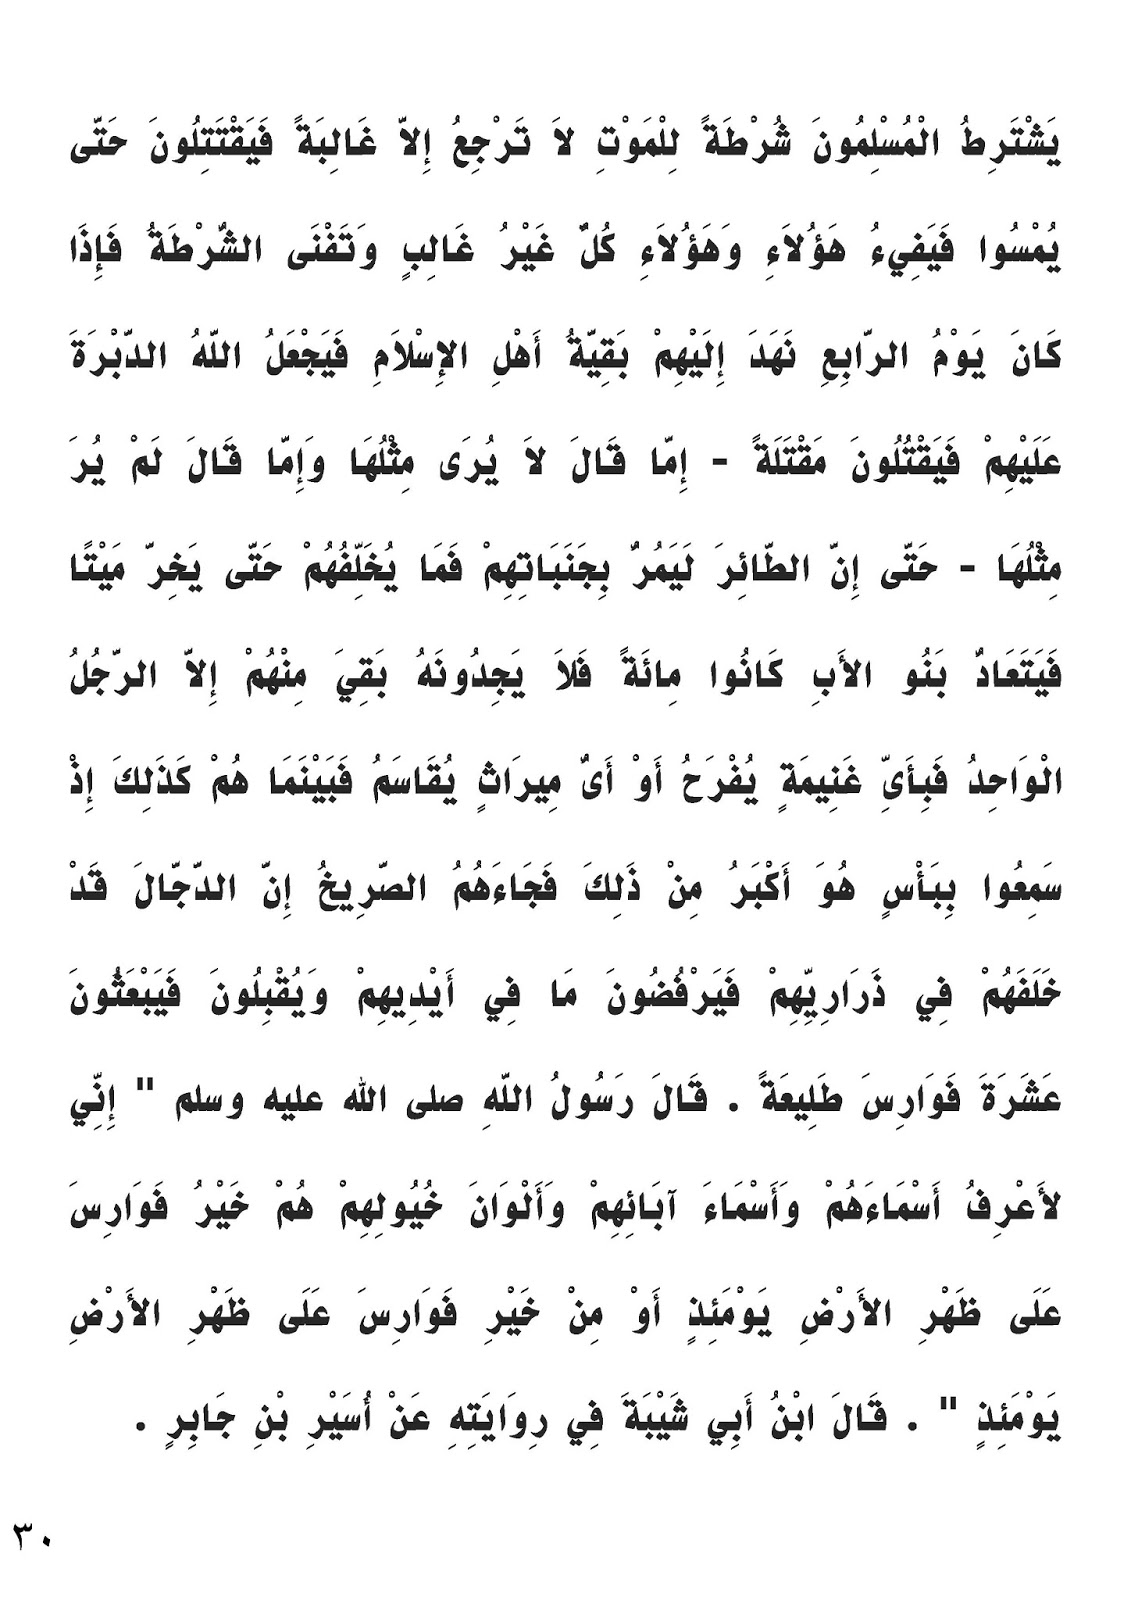 يَشْتَرِطُ الْمُسْلِمُونَ شُرْطَةً لِلْمَوْتِ لاَ تَرْجِعُ إِلاَّ غَالِبَةً فَيَقْتَتِلُونَ حَتَّى
يُمْسُوا فَيَفِيءُ هَؤُلاَءِ وَهَؤُلاَءِ كُلٌّ غَيْرُ غَالِبٍ وَتَفْنَى الشُّرْطَةُ فَإِذَا
كَانَ يَوْمُ الرَّابِعِ نَهَدَ إِلَيْهِمْ بَقِيَّةُ أَهْلِ الإِسْلَامِ فَيَجْعَلُ اللَّهُ الدَّبْرَةَ
عَلَيْهِمْ فَيَقْتُلُونَ مَقْتَلَةً - إِمَّا قَالَ لاَ يُرَى مِثْلُهَا وَإِمَّا قَالَ لَمْ يُرَ
مِثْلُهَا - حَتَّى إِنَّ الطَّائِرَ لَيَمُرُّ بِجَنَبَاتِهِمْ فَمَا يُخَلِّفُهُمْ حَتَّى يَخِرَّ مَيْتًا
فَيَتَعَادُّ بَنُو الأَبِ كَانُوا مِائَةً فَلاَ يَجِدُونَهُ بَقِيَ مِنْهُمْ إِلاَّ الرَّجُلُ
الْوَاحِدُ فَبِأَىِّ غَنِيمَةٍ يُفْرَحُ أَوْ أَىُّ مِيرَاثٍ يُقَاسَمُ فَبَيْنَمَا هُمْ كَذَلِكَ إِذْ
سَمِعُوا بِبَأْسٍ هُوَ أَكْبَرُ مِنْ ذَلِكَ فَجَاءَهُمُ الصَّرِيخُ إِنَّ الدَّجَّالَ قَدْ
خَلَفَهُمْ فِي ذَرَارِيِّهِمْ فَيَرْفُضُونَ مَا فِي أَيْدِيهِمْ وَيُقْبِلُونَ فَيَبْعَثُونَ
عَشَرَةَ فَوَارِسَ طَلِيعَةً . قَالَ رَسُولُ اللَّهِ صلى الله عليه وسلم " إِنِّي
لأَعْرِفُ أَسْمَاءَهُمْ وَأَسْمَاءَ آبَائِهِمْ وَأَلْوَانَ خُيُولِهِمْ هُمْ خَيْرُ فَوَارِسَ
عَلَى ظَهْرِ الأَرْضِ يَوْمَئِذٍ أَوْ مِنْ خَيْرِ فَوَارِسَ عَلَى ظَهْرِ الأَرْضِ
يَوْمَئِذٍ " . قَالَ ابْنُ أَبِي شَيْبَةَ فِي رِوَايَتِهِ عَنْ أُسَيْرِ بْنِ جَابِرٍ .
٣٠